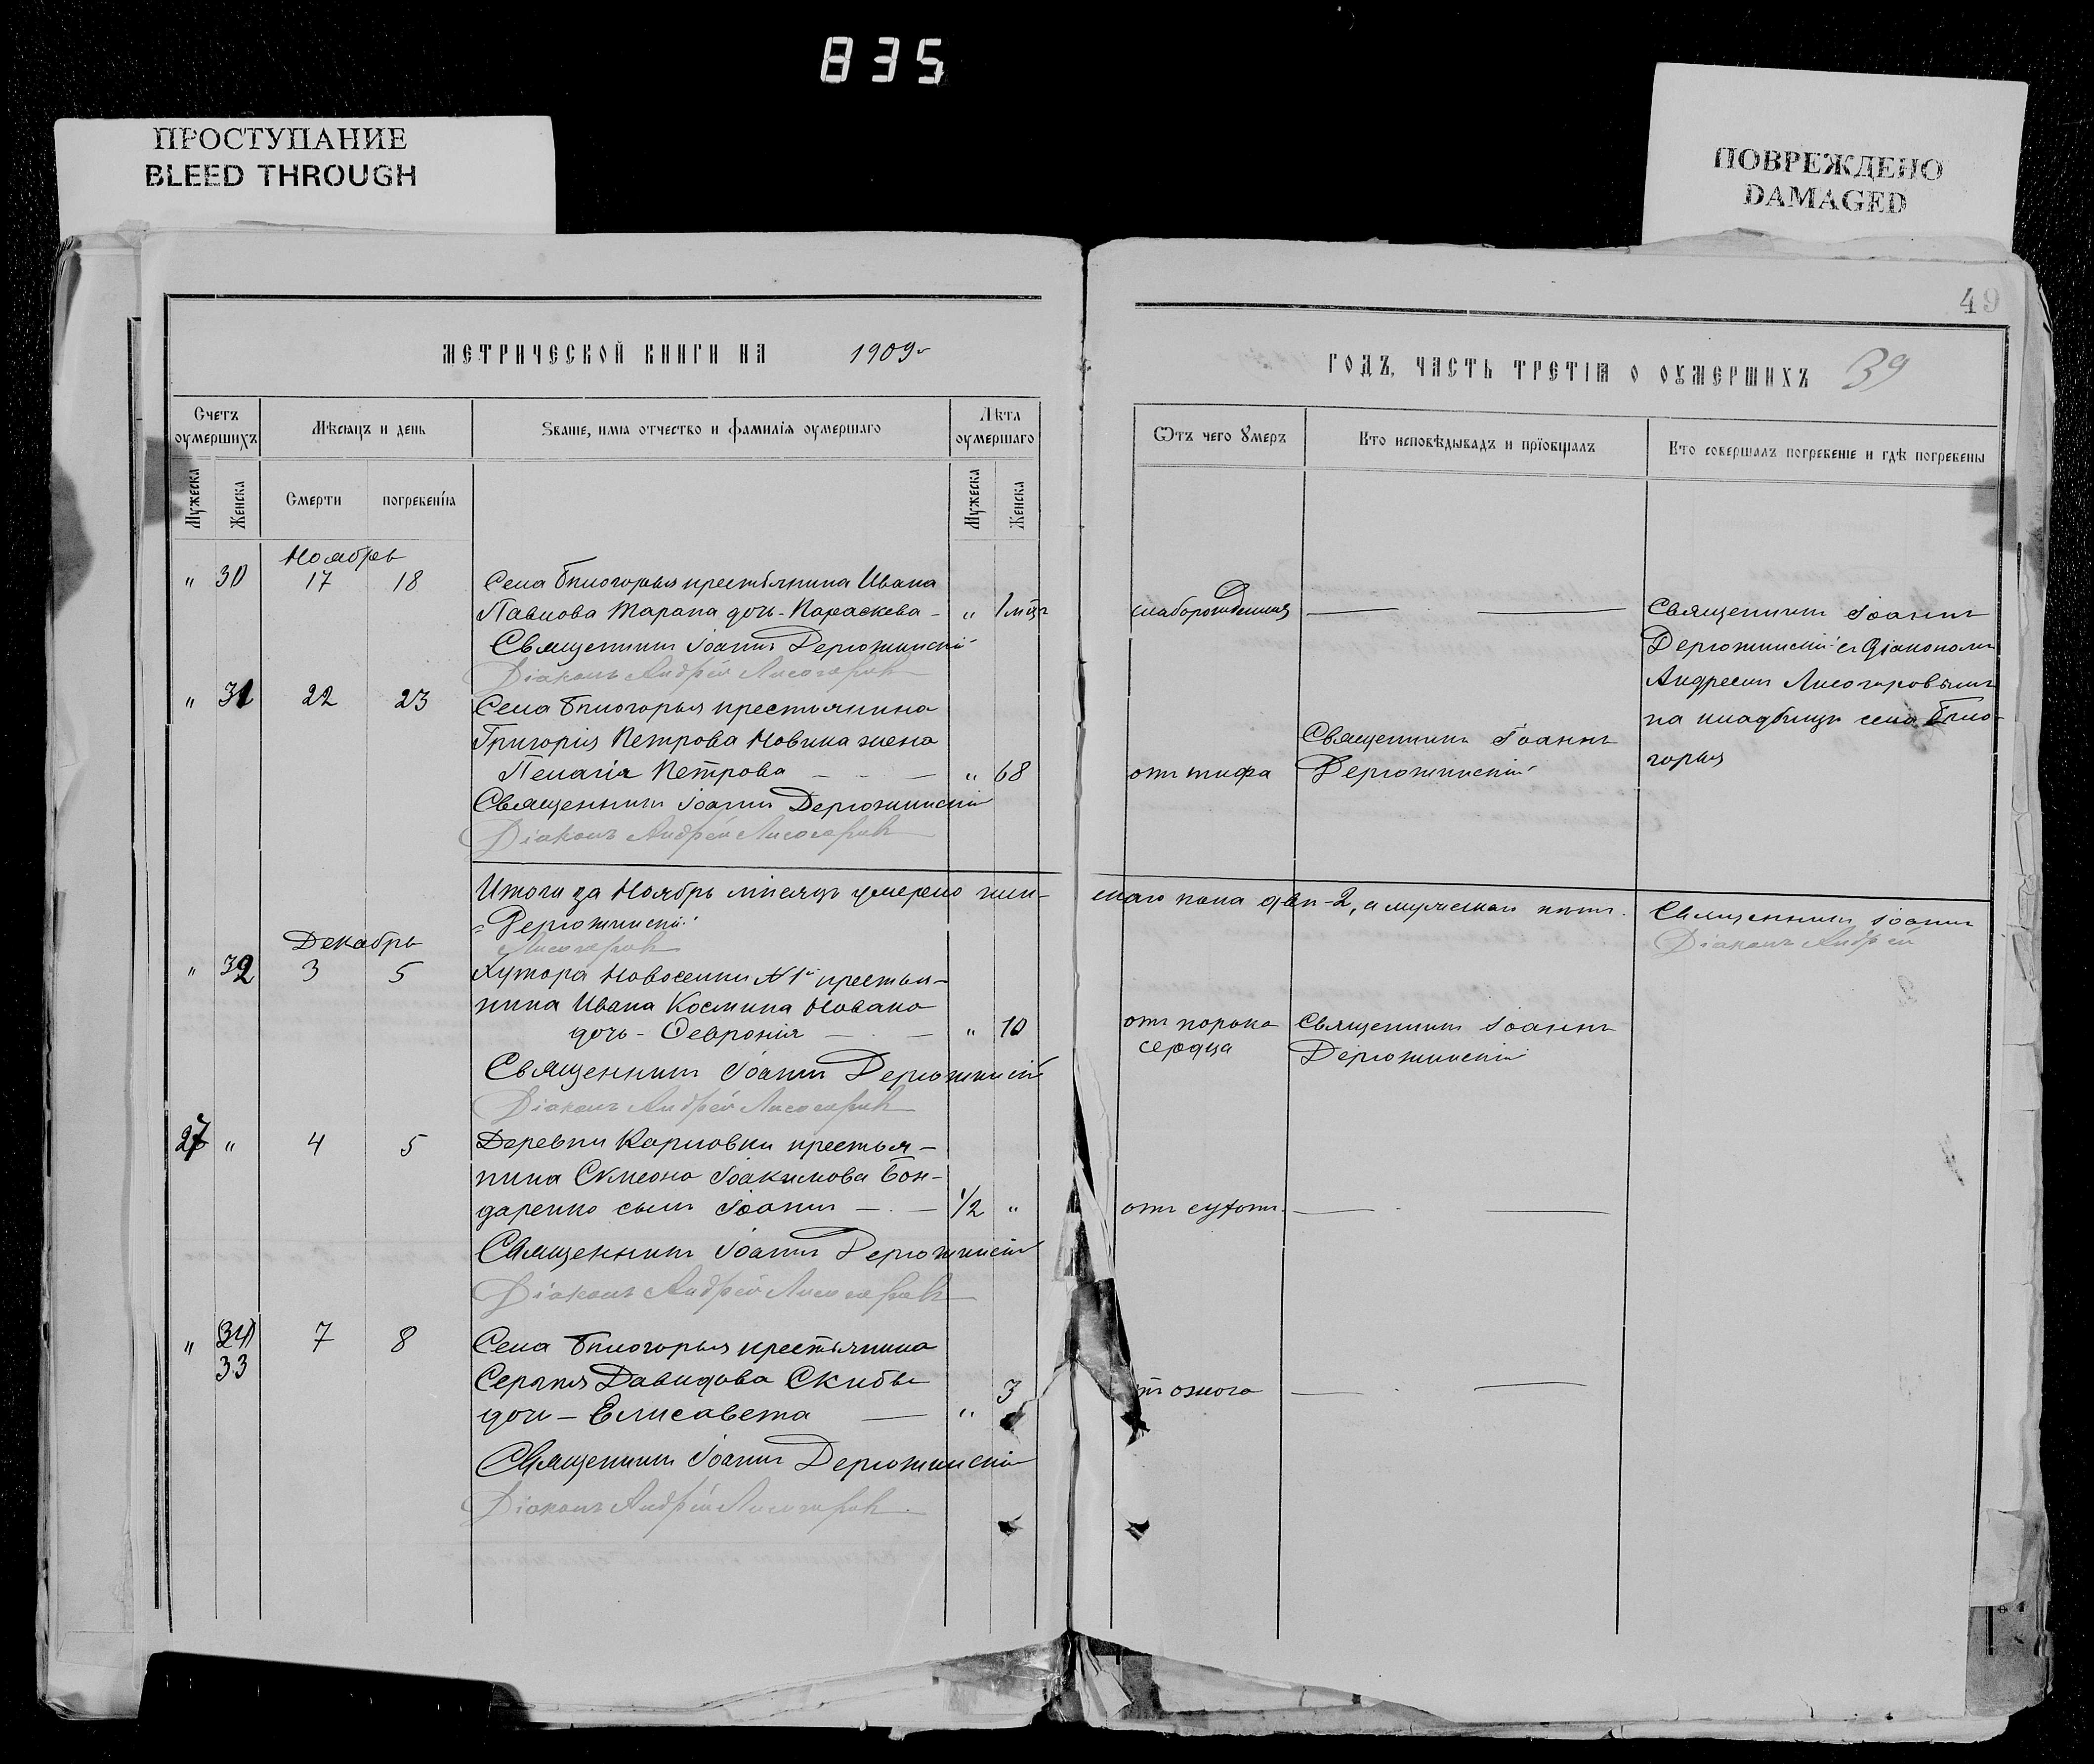 835
ПРОСТУПАНИЕ
BLEED THROUGH
ПОВРЕЖДЕНО
DAMAGED
49
МЕТРИЧЕСКОЙ КНИГИ НА 1909 г
ГОДЪ, ЧАСТЬ ТРЕТІЯ О ОУМЕРШИХЪ 39
Счетъ оумершихъ
Мѣсяцъ и день
Званіе, имя отчество и фамилія оумершаго
Лѣта оумершаго
Мужеска
Женска
Смерти
погребенія
Мужеска
Женска
Ѿтъ чего ѹмеръ
Кто исповѣдывалъ и пріобщалъ
Кто совершалъ погребеніе и гдѣ погребены
Ноябрь
" 30 17 18 Села Бѣлогорья крестьянина Ивана
Павлова Тарана дочь - Параскева - " 1 мѣц
слаборожденія
Священникъ Іоаннъ Дерюжинскій
Діаконъ Андрей Лисогоровъ
Священникъ Іоаннъ
Дерюжинскій съ діакономъ
Андреемъ Лисогоровымъ
на кладбищѣ села Бѣло-
горья
" 31 22 23 Села Бѣлогорья крестьянина
Григорія Петрова Новика жена
Пелагія Петрова - - - " 68
отъ тифа
Священникъ Іоаннъ
Дерюжинскій
Священникъ Іоаннъ Дерюжинскій
Діаконъ Андрей Лисогоровъ
Итого за Ноябрь мѣсяцъ умерло жен-
скаго пола двѣ - 2, а мужескаго нѣтъ. Священникъ Іоаннъ
= Дерюжинскій
Лисогоровъ
Діаконъ Андрей
Декабрь
" 32 3 5 Хутора Новоселки № 1й крестья-
нина Ивана Космина Новака
дочь - Февронія - - " 10
отъ порока
сердца
Священникъ Іоаннъ
Дерюжинскій
Священникъ Іоаннъ Дерюжинскій
Діаконъ Андрей Лисогоровъ
27 " 4 5 Деревни Карловки крестья-
нина Симеона Іоакимова Бон-
даренко сынъ Іоаннъ - - 1/2 "
отъ сухот.
Священникъ Іоаннъ Дерюжинскій
Діаконъ Андрей Лисогоровъ
" 33 7 8 Села Бѣлогорья крестьянина
Сергія Давидова Скибы
дочь - Елисавета - " 3
тъ ожога
Священникъ Іоаннъ Дерюжинскій
Діаконъ Андрей Лисогоровъ